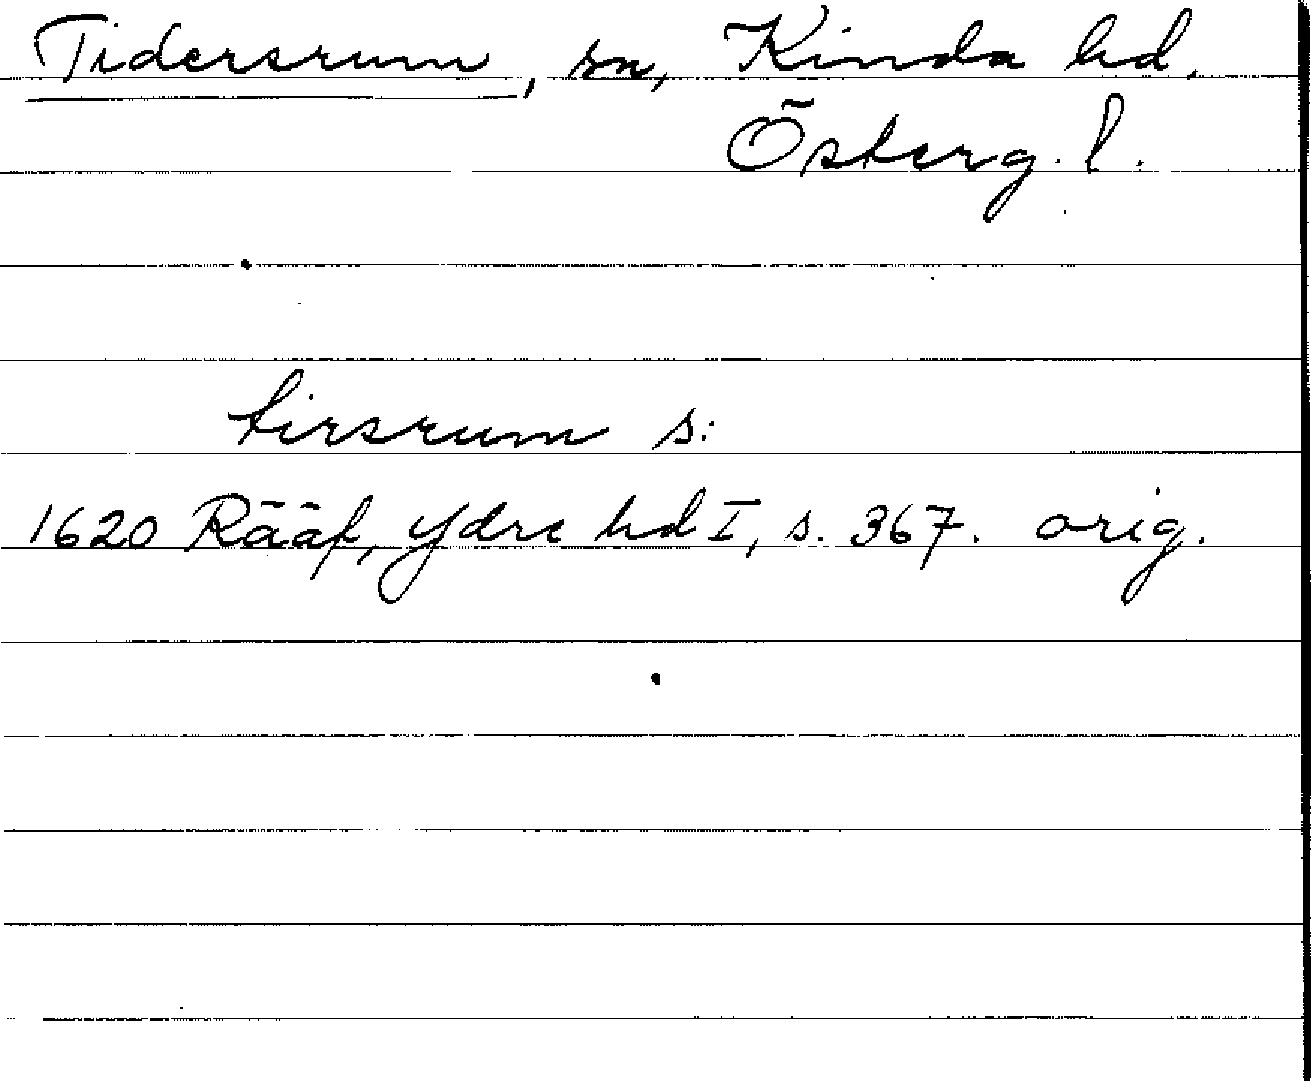 Tidersrum, sn, Kinda hd.
Österg. l.
tirsrum s:
1620 Rääf, Ydre hd I, s. 367. orig.